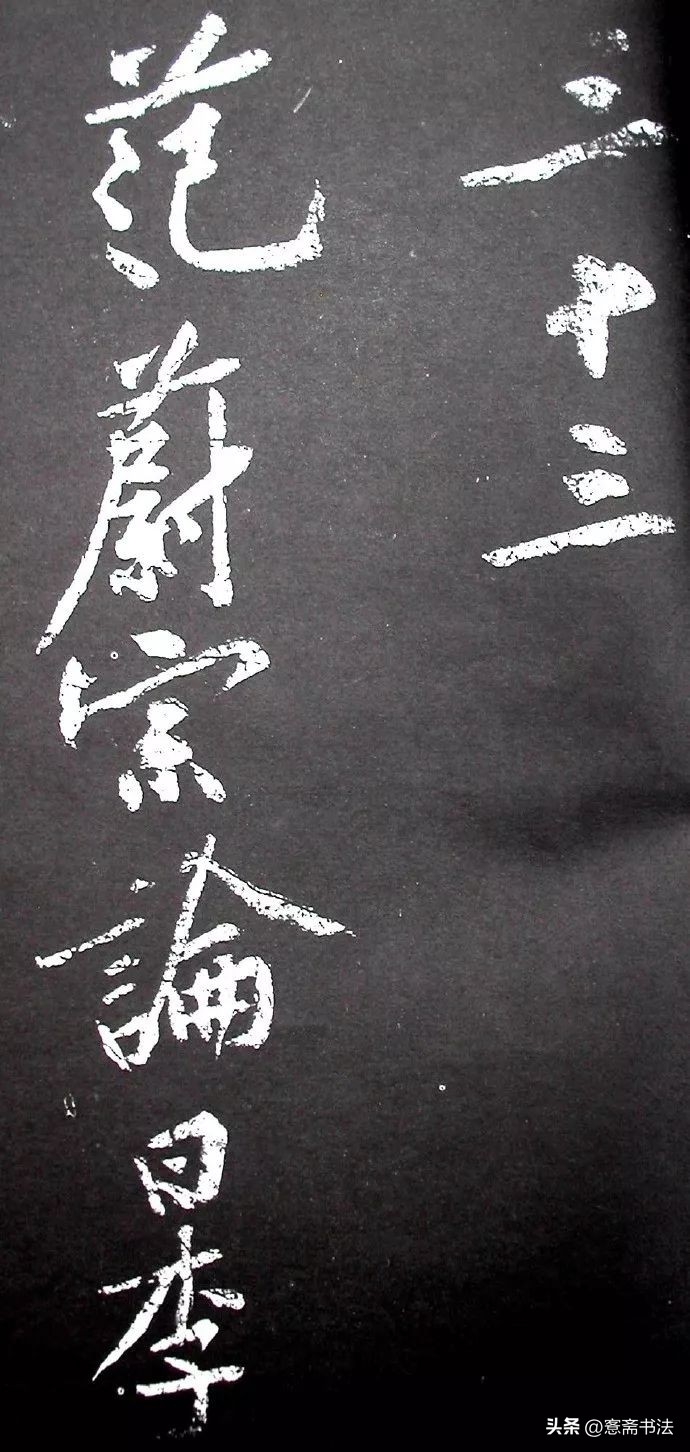 三十三
范蔚宗論曰李
头条 @愙斋书法